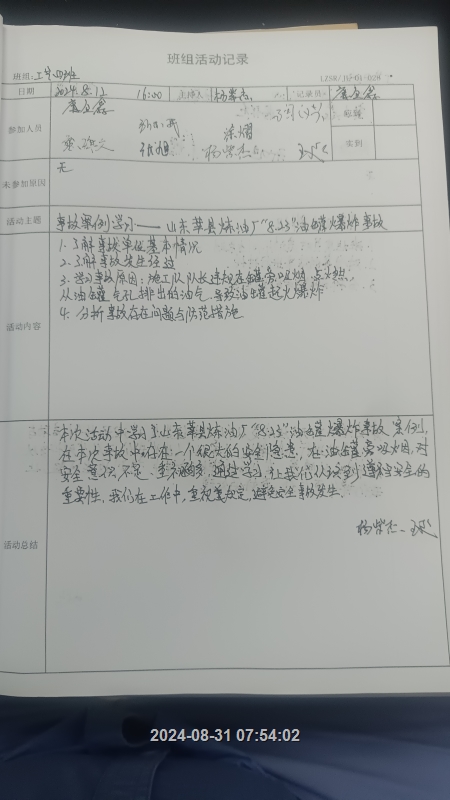 班组活动记录
班组: 工管四班
日期 2024.8.12 16:00 主持人 记录员
参加人员 应到
涂熠
杨紫杰 实到
未参加原因 无
活动主题 事故案例学习——山东莘县炼油厂"8.23"油罐爆炸事故
活动内容
1. 了解事故单位基本情况
2. 了解事故发生经过
3. 学习事故原因: 施工队队长违规在罐旁吸烟, 点燃
从油罐气孔排出的油气, 导致油罐起火爆炸
4. 分析事故存在问题与防范措施
活动总结
本次活动中学习山东莘县炼油厂"8.23"油罐爆炸事故案例,
在本次事故中存在一个很大的安全隐患, 在油罐旁吸烟, 对
安全意识不足, 通过学习, 让我们认识到遵守安全的
重要性, 我们在工作中, 重视规定, 避免安全事故发生.
杨紫杰
2024-08-31 07:54:02